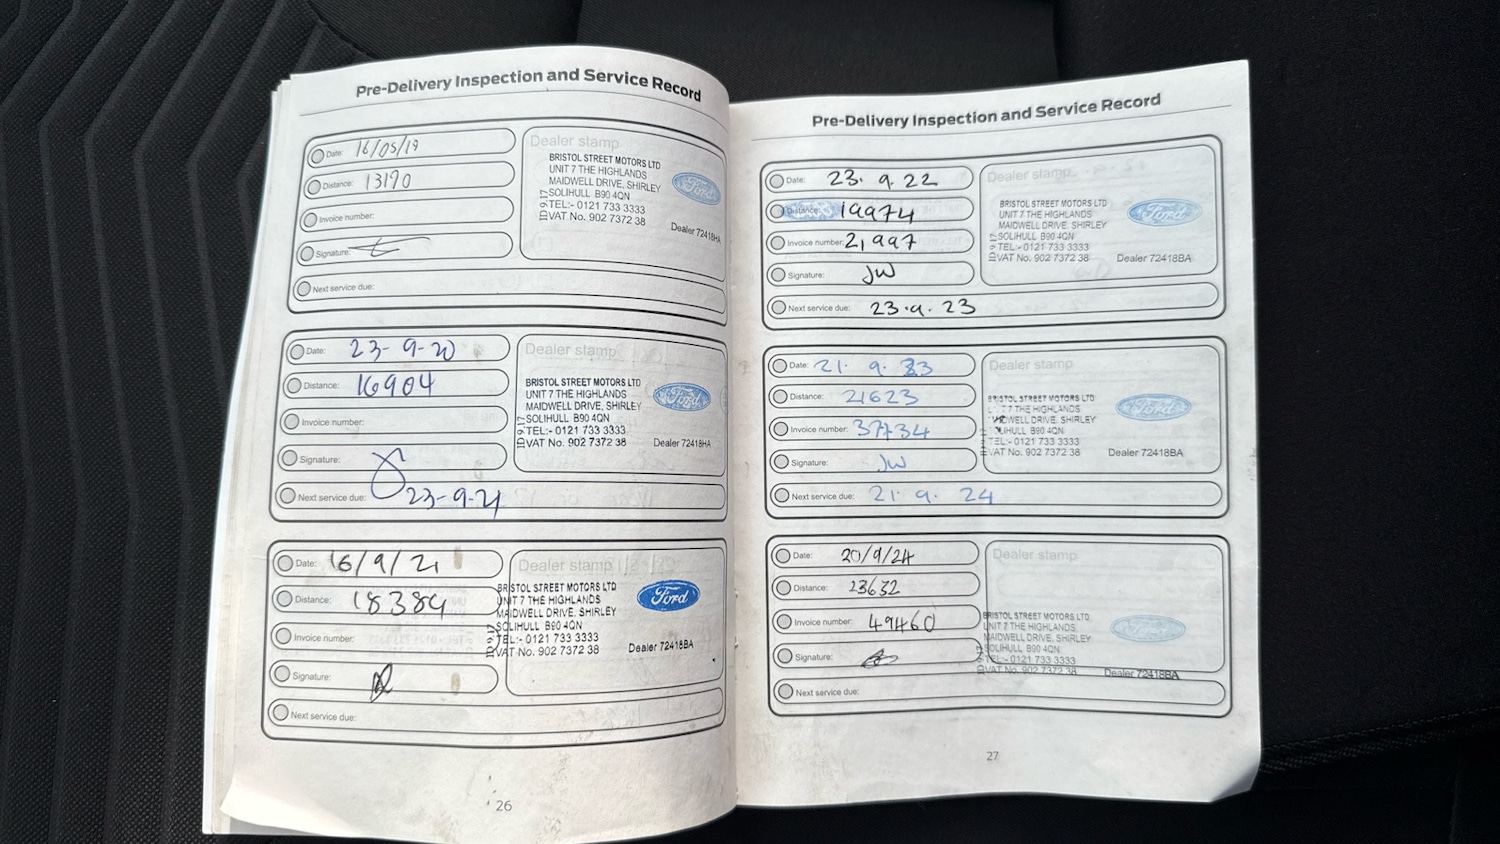 Pre-Delivery Inspection and Service Record
Date: 16/05/19
Distance: 13190
Invoice number:
Signature:
Next service due:
Dealer stamp
BRISTOL STREET MOTORS LTD
UNIT 7 THE HIGHLANDS
MAIDWELL DRIVE, SHIRLEY
SOLIHULL B90 4QN
TEL:- 0121 733 3333
VAT No. 902 7372 38
ID 9.17
Ford
Dealer 72418HA
Date: 23-9-20
Distance: 16904
Invoice number:
Signature:
Next service due: 23-9-21
Dealer stamp
BRISTOL STREET MOTORS LTD
UNIT 7 THE HIGHLANDS
MAIDWELL DRIVE, SHIRLEY
SOLIHULL B90 4QN
TEL:- 0121 733 3333
VAT No. 902 7372 38
ID 9.17
Ford
Dealer 72418HA
Date: 16/9/21
Distance: 18384
Invoice number:
Signature:
Next service due:
Dealer stamp
BRISTOL STREET MOTORS LTD
UNIT 7 THE HIGHLANDS
MAIDWELL DRIVE, SHIRLEY
SOLIHULL B90 4QN
TEL:- 0121 733 3333
VAT No. 902 7372 38
ID 9.17
Ford
Dealer 72418BA
26
Pre-Delivery Inspection and Service Record
Date: 23.9.22
Distance: 19974
Invoice number: 21997
Signature: JW
Next service due: 23.9.23
Dealer stamp
BRISTOL STREET MOTORS LTD
UNIT 7 THE HIGHLANDS
MAIDWELL DRIVE, SHIRLEY
SOLIHULL B90 4QN
TEL:- 0121 733 3333
VAT No. 902 7372 38
Ford
Dealer 72418BA
Date: 21.9.23
Distance: 21623
Invoice number: 37734
Signature: JW
Next service due: 21.9.24
Dealer stamp
BRISTOL STREET MOTORS LTD
7 THE HIGHLANDS
DRIVE, SHIRLEY
B90 4QN
TEL:- 0121 733 3333
VAT No. 902 7372 38
Ford
Dealer 72418BA
Date: 20/9/24
Distance: 23632
Invoice number: 49460
Signature:
Next service due:
Dealer stamp
BRISTOL STREET MOTORS LTD
UNIT 7 THE HIGHLANDS
MAIDWELL DRIVE, SHIRLEY
SOLIHULL B90 4QN
TEL:- 0121 733 3333
VAT No. 902 7372 38
Ford
Dealer 72418BA
27